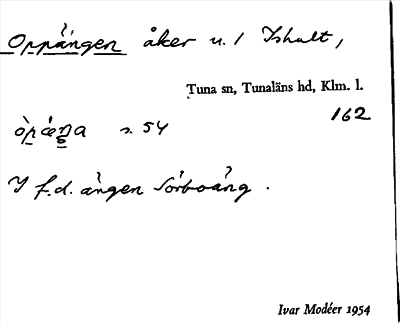 Oppängen åker u. / Ishult,
Tuna sn, Tunaläns hd, Klm. l.
162
s. 54
I f.d. ängen Sörboäng.
Ivar Modéer 1954